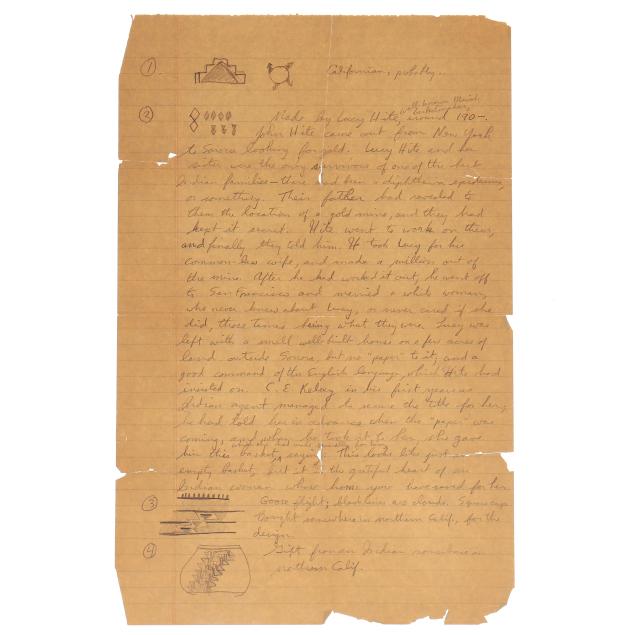 ① Californian, probably.
② Made by Lucy Hite, well known Miwok basketmaker, around 190-.
John Hite came out from New York
to Sonora looking for gold. Lucy Hite and her
sister were the only survivors of one of the best
Indian families — there had been a diphtheria epidemic
or something. Their father had revealed to
them the location of a gold mine, and they had
kept it secret. Hite went to work on them,
and finally they told him. He took Lucy for his
common-law wife, and made a million out of
the mine. After he had worked it out, he went off
to San Francisco and married a white woman,
who never knew about Lucy, or never cared if she
did, those times being what they were. Lucy was
left with a small well-built house on a few acres of
land outside Sonora, but no "paper" to it, and a
good command of the English language, which Hite had
insisted on. C. E. Kelsey in his first year as
Indian agent managed to secure the title for her;
he had told her in advance when the "paper" was
coming, and when he took it to her, she gave
him this basket, saying, This looks like just an
empty basket, but it is the grateful heart of an
Indian woman whose home you have saved for her
③ Goose flight; black lines are clouds. Squaw cap
bought somewhere in northern Calif., for the
design.
④ Gift from an Indian somewhere in
northern Calif.